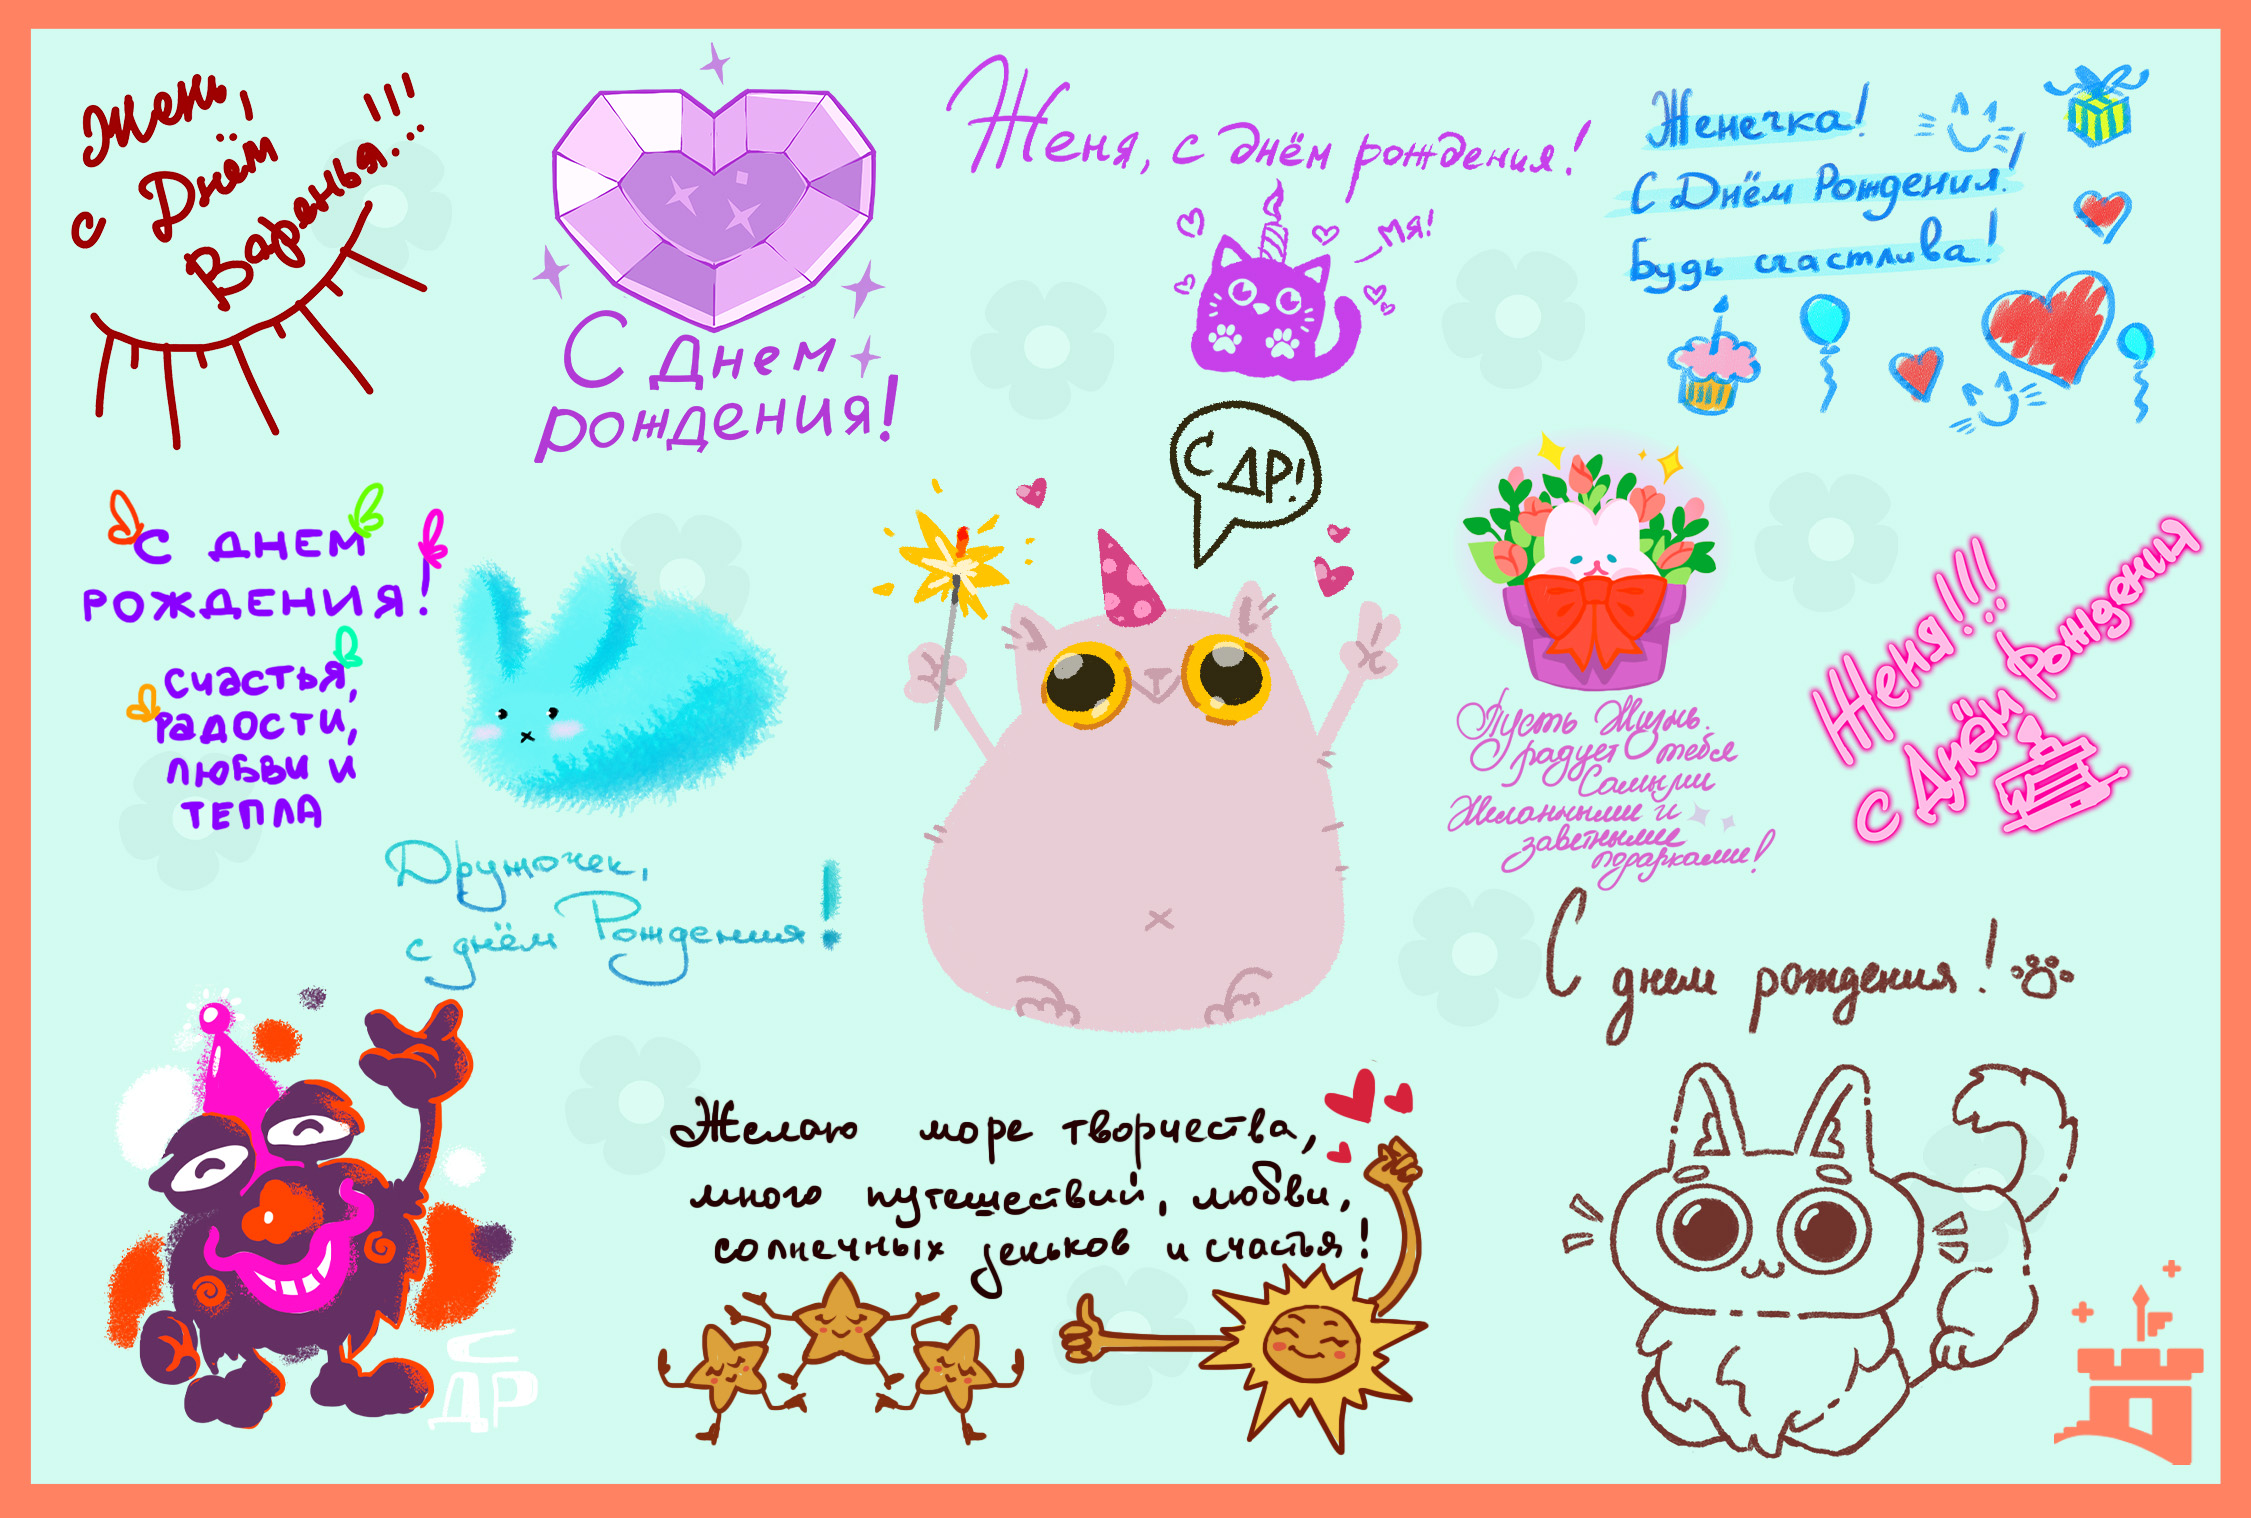 Жень,
с Днём
Варенья...!!!
С Днем
рождения!
Женя, с днём рождения!
Мя!
Женечка!
С Днём Рождения!
Будь счастлива!
С ДР!
С ДНЕМ
РОЖДЕНИЯ!
СЧАСТЬЯ,
РАДОСТИ,
ЛЮБВИ И
ТЕПЛА
Дружочек,
с днём Рождения!
Пусть Жизнь
радует тебя
Самыми
Желанными и
заветными
подарками!
Женя!!!
С Днём рождения
С днем рождения!
Желаю море творчества,
много путешествий, любви,
солнечных деньков и счастья!
С
ДР